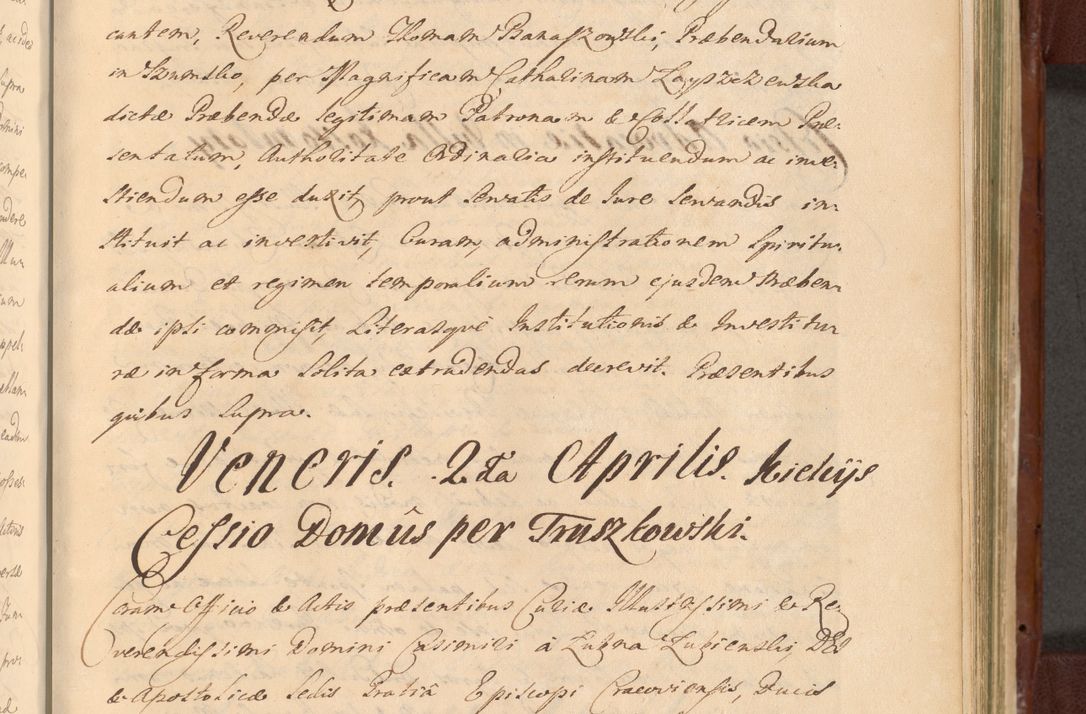 cantem, Reverendum Thomam Banaszowski, Præbendarium
in Szumsko, per Magnificam Catharinam Zayszczewska
dictæ Præbendæ legitimam Patronam & Collatricem Præ-
sentatum, Authoritate Ordinaria instituendum ac inve-
stiendum esse duxit, prout servatis de Jure servandis in-
stituit ac investivit, Curam, administrationem Spiritu-
alium et regimen temporalium rerum ejusdem Præben-
dæ ipsi commisit, Literasque Institutionis & Investitu-
ræ in forma solita extradendas decrevit. Præsentibus
quibus supra.
Veneris. 2da Aprilis. Kiclijs
Cessio Domûs per Truszkowski.
Coram Officio & Actis præsentibus Curiæ Illustrissimi & Re-
verendissimi Domini Casimiri à Łubna Łubienski, DEI
& Apostolicæ Sedis Gratiâ Episcopi Cracoviensis, Ducis